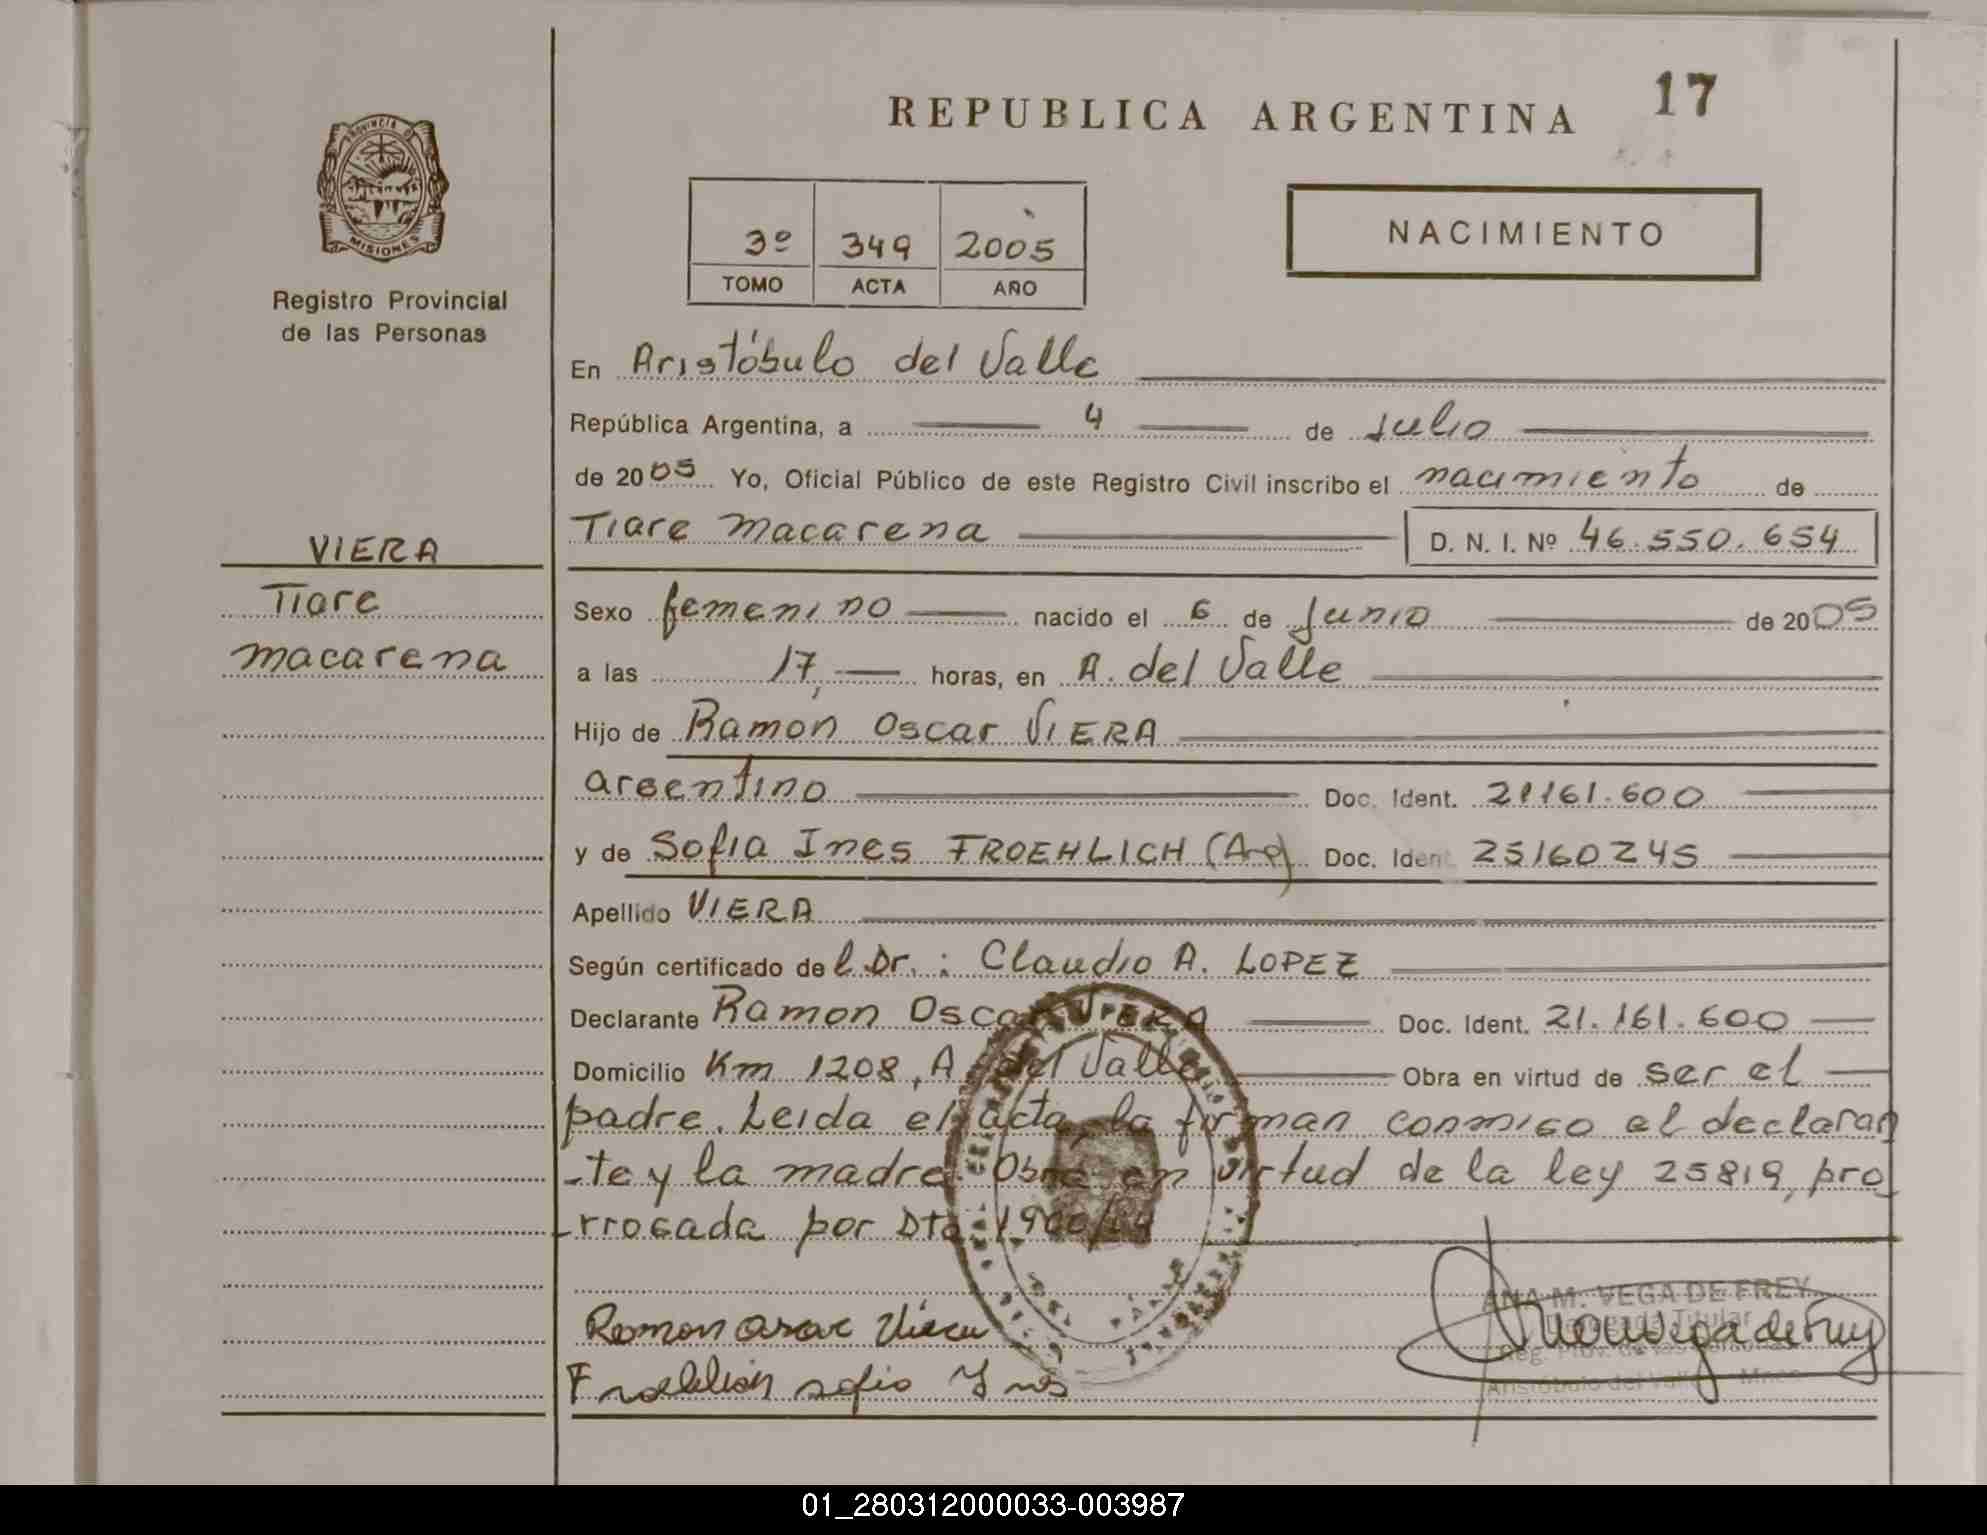 17
REPUBLICA ARGENTINA
PROVINCIA D
MISIONES
Registro Provincial
de las Personas
3º 349 2005
TOMO ACTA AÑO
NACIMIENTO
En Aristóbulo del Valle
República Argentina, a 4 de Julio
de 2005 Yo, Oficial Público de este Registro Civil inscribo el nacimiento de
Tiare Macarena D. N. I. Nº 46.550.654
VIERA
Tiare
Macarena
Sexo femenino nacido el 6 de Junio de 2005
a las 17, horas, en A. del Valle
Hijo de Ramón Oscar VIERA
argentino Doc. Ident. 21161.600
y de Sofia Ines FROEHLICH (Arg) Doc. Ident. 25160245
Apellido VIERA
Según certificado del Dr.: Claudio A. LOPEZ
Declarante Ramon Oscar VIERA Doc. Ident. 21.161.600
Domicilio Km 1208, A. del Valle Obra en virtud de ser el
padre. Leida el acta, la firman conmigo el declaran
-te y la madre. Obra en virtud de la ley 25819, pro
-rrogada por Dto.
Ramon Oscar Viera
Froehlich Sofia Inés
ANA M. VEGA DE FREY
Delegada Titular
Reg. Prov. de las Personas
Aristóbulo del Valle - Mnes
01_280312000033-003987